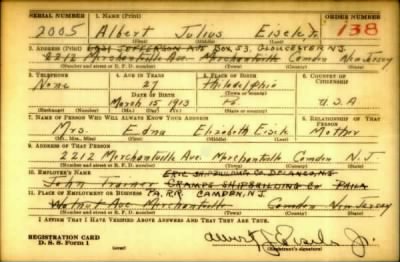 SERIAL NUMBER 1. NAME (Print) ORDER NUMBER
2005 Albert Julius Eisele Jr. 138
(First) (Middle) (Last)
2. ADDRESS (Print) JEFFERSON AVE BOX 53, GLOUCESTER N.J.
2212 Merchantville Ave. Merchantville Camden New Jersey
(Number and street or R. F. D. number) (Town) (County) (State)
3. TELEPHONE 4. AGE IN YEARS 5. PLACE OF BIRTH 6. COUNTRY OF CITIZENSHIP
None 27 Philadelphia
DATE OF BIRTH (Town or county)
March 15 1913 Pa. U.S.A
(Exchange) (Number) (Mo.) (Day) (Yr.) (State or country)
7. NAME OF PERSON WHO WILL ALWAYS KNOW YOUR ADDRESS 8. RELATIONSHIP OF THAT PERSON
Mrs. Edna Elizabeth Eisele Mother
(Mr., Mrs., Miss) (First) (Middle) (Last)
9. ADDRESS OF THAT PERSON
2212 Merchantville Ave. Merchantville Camden N.J
(Number and street or R. F. D. number) (Town) (County) (State)
10. EMPLOYER'S NAME SHIPBUILDING CO. DELANCO, N.J.
John CRAMPS SHIPBUILDING Co PHILA
11. PLACE OF EMPLOYMENT OR BUSINESS PA. RR. CAMDEN, N.J.
Walnut Ave Merchantville Camden New Jersey
(Number and street or R. F. D. number) (Town) (County) (State)
I AFFIRM THAT I HAVE VERIFIED ABOVE ANSWERS AND THAT THEY ARE TRUE.
REGISTRATION CARD
D. S. S. Form 1 (over) Albert J. Eisele Jr.
(Registrant's signature)